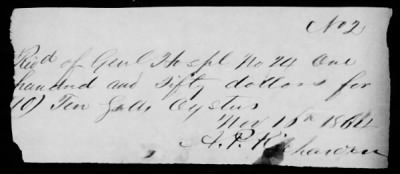 No 2
Recd of Genl Hospl No 24 One
hundred and Fifty dollars for
(10) Ten Galls Oysters
Nov 15th 1862
A. P. Richardson